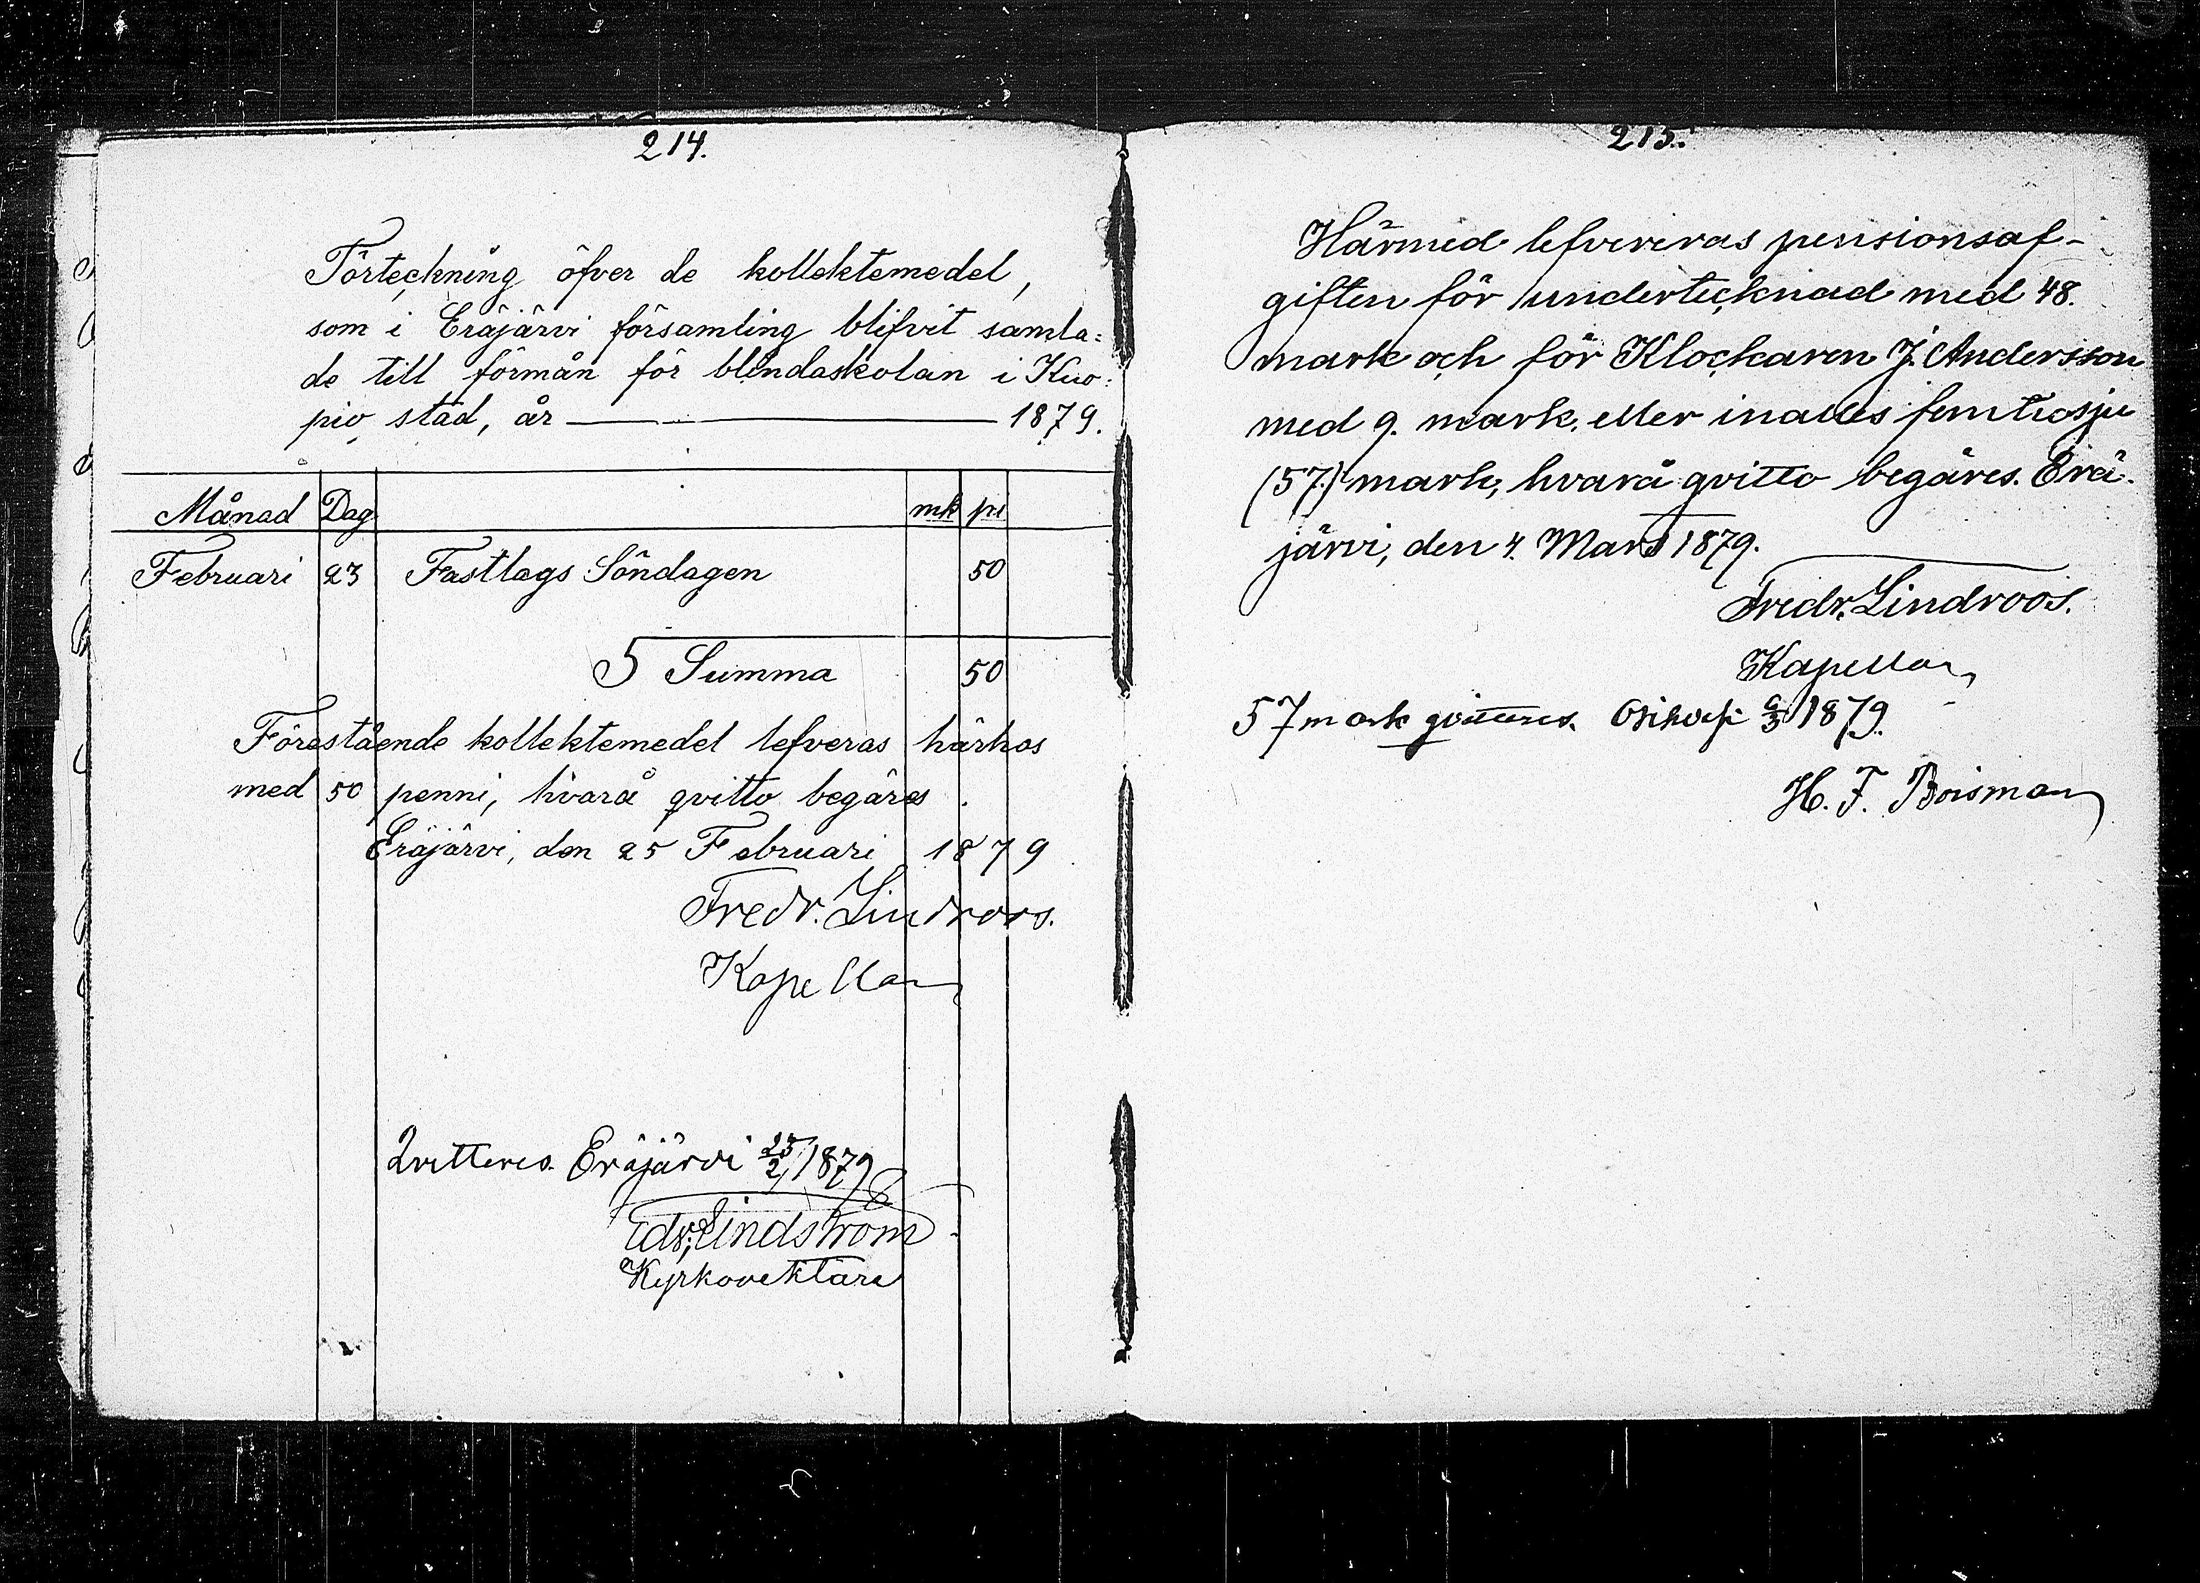 214.
Förteckning öfver de kollektemedel,
som i Eräjärvi församling blifvit samla=
de till förmån för blindaskolan i Kuo=
pio stad, år — 1879.
Månad Dag mk pi
Februari 23 Fastlags Söndagen 50
Summa 50
Förestående kollektemedel lefveras härhos
med 50 penni, hvarå qvitto begäres.
Eräjärvi, den 25 Februari 1879
Fredr. Lindroos.
Kapellan
Qvitteres. Eräjärvi 25/2 1879
Edv. Lindström
Kyrkovektäre
215.
Härmed lefvereras pensionsaf-
giften för undertecknad med 48.
mark och för Klockaren J. Andersson
med 9. mark. eller inalles femtiosju
(57.) mark, hvarå qvitto begäres. Erä-
järvi, den 4. Mars 1879.
Fredr. Lindroos.
Kapellan
57 mark qvitteres. 1879.
H. F. Boisman